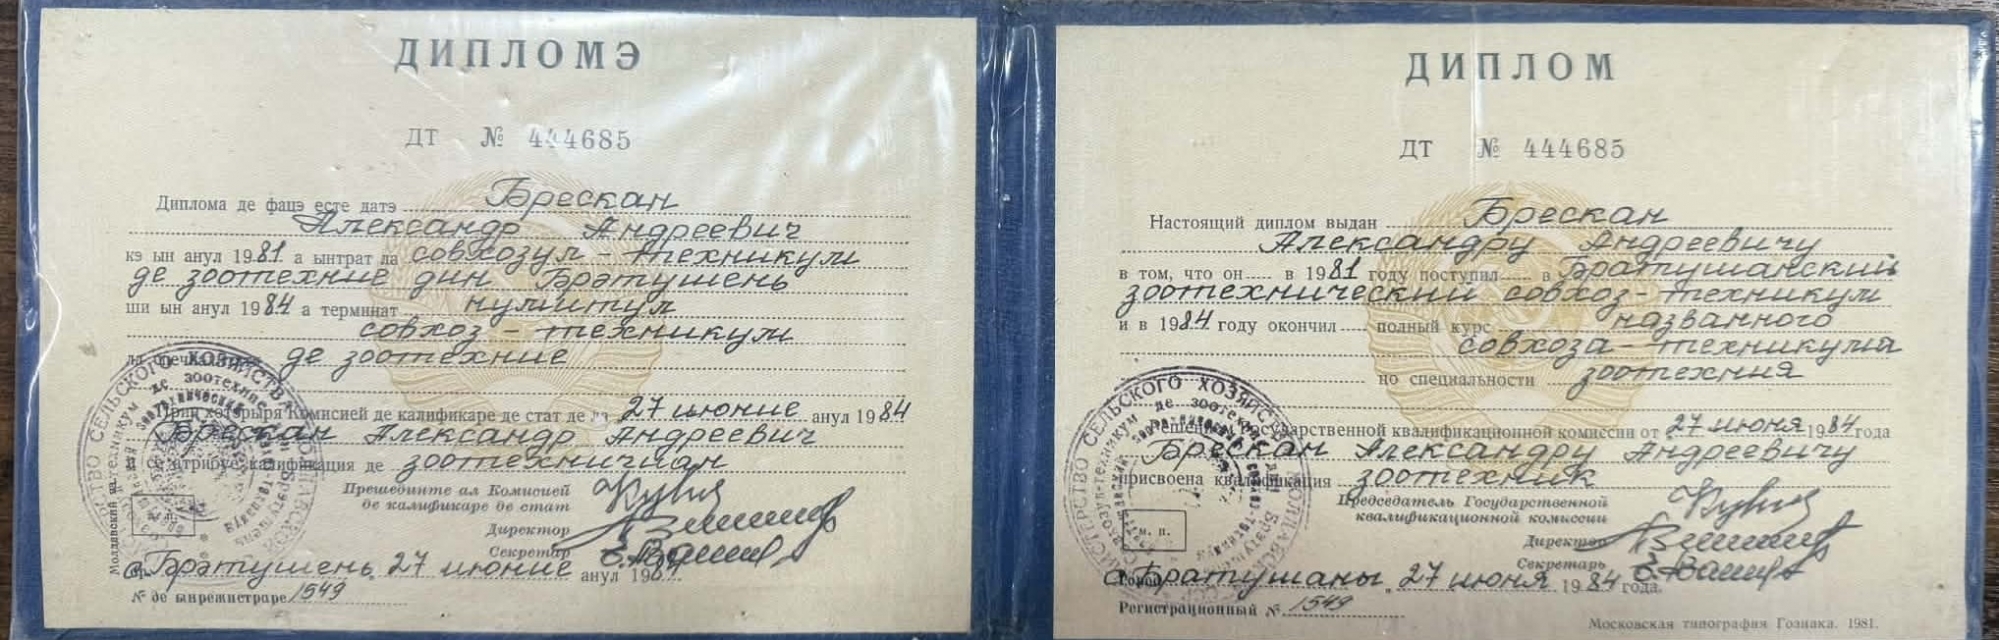 ДИПЛОМЭ
ДТ № 444685
Диплома де фацэ есте датэ Брескан
Александр Андреевич
кэ ын анул 1981 а ынтрат ла совхозул-техникум
де зоотехние дин Брэтушень
ши ын анул 1984 а терминат нумитул
совхоз-техникум
де зоотехние
Прин хотэрыря Комисией де калификаре де стат де ла 27 июние анул 1984
Брескан Александр Андреевич
калификация де зоотехничиан
Прешединте ал Комисией
де калификаре де стат
Директор
Секретар
с. Брэтушень, 27 июние анул 1984
№ де ынрежистраре 1549
ДИПЛОМ
ДТ № 444685
Настоящий диплом выдан Брескан
Александру Андреевичу
в том, что он в 1981 году поступил в Братушанский
зоотехнический совхоз-техникум
и в 1984 году окончил полный курс названного
совхоза-техникума
по специальности зоотехния
Решением Государственной квалификационной комиссии от 27 июня 1984 года
Брескан Александру Андреевичу
присвоена квалификация зоотехник
Председатель Государственной
квалификационной комиссии
Директор
Секретарь
М. П.
с. Братушаны, 27 июня 1984 года.
Регистрационный № 1549
Московская типография Гознака. 1981.